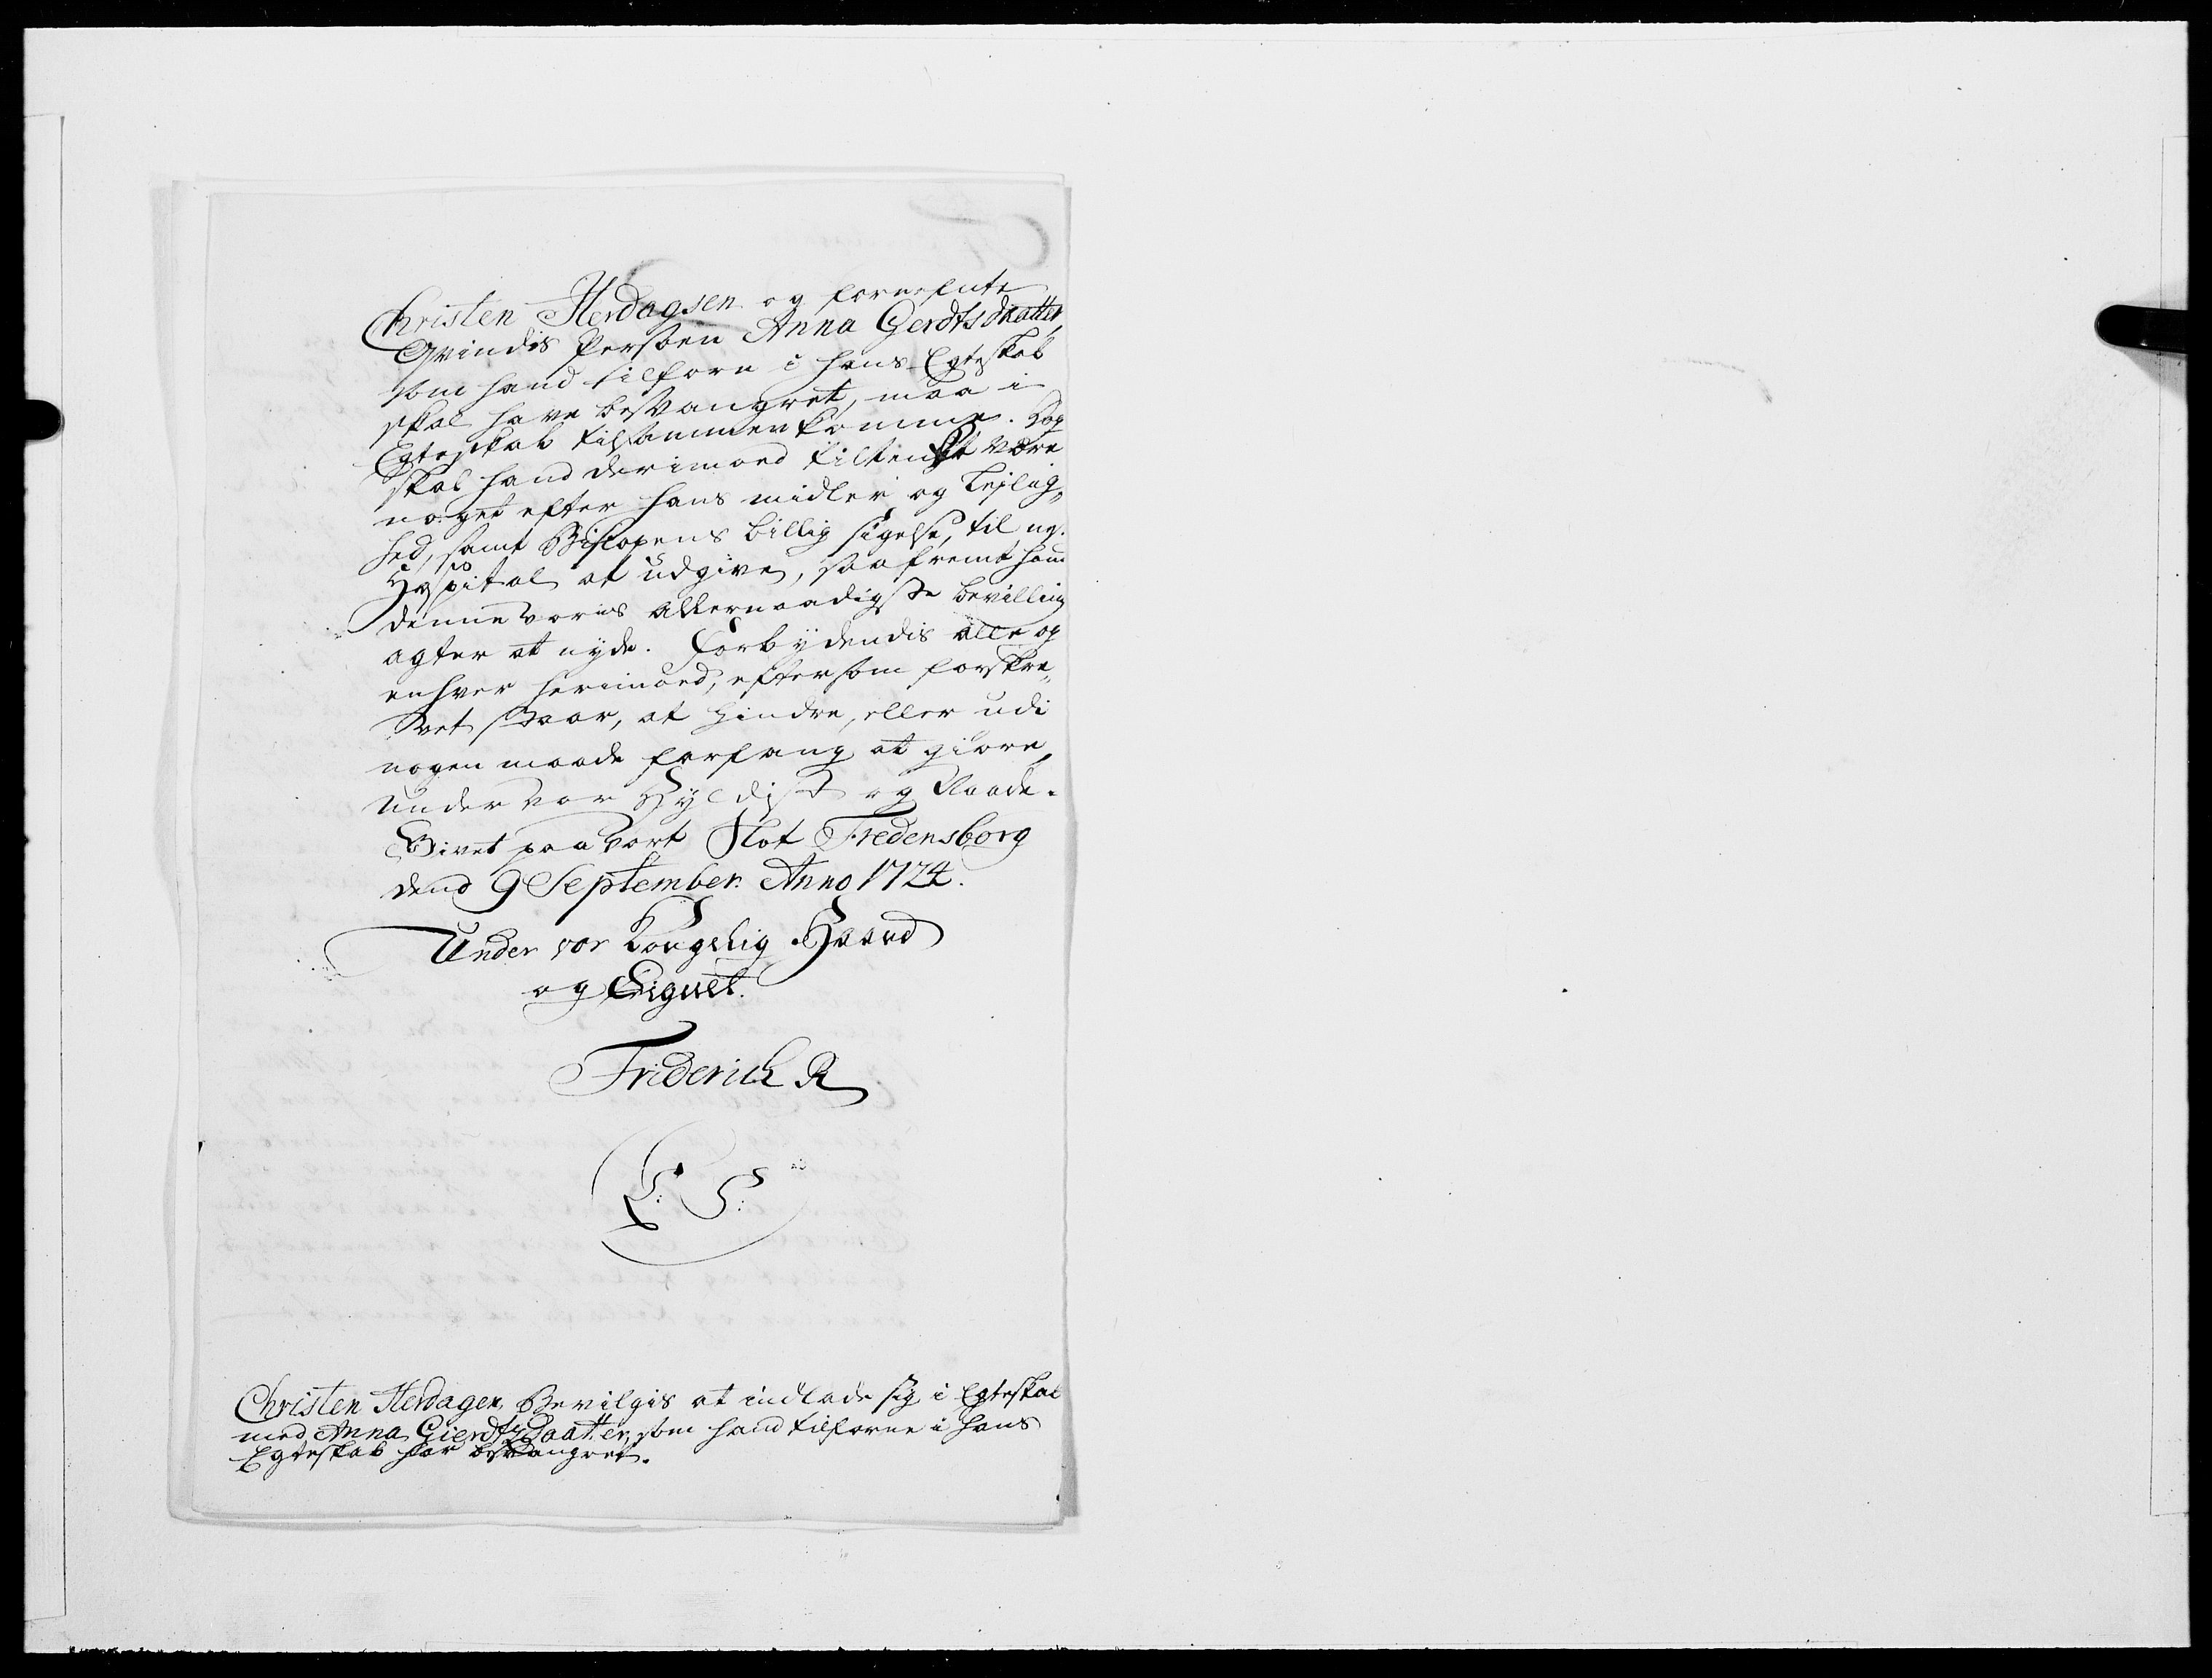 Christen Herdagsen og forneffnte
Qvindis Persoen Anna Gerdtsdaatter,
som hand tilforn i hans Egteskab
skal have besvangret, maa i
Egteskab tilsammenkomme. Dog
skal hand derimoed tiltenkt være
noget efter hans midler og Lejlig„
hed, samt Biscopens billig sigelse, til
Hospital at udgive, saafremt hand
denne voris allernaadigste bevilling
agter at nyde. Forbydendis alle og
enhver herimoed, eftersom forskre„
vet staar, at hindre, eller udi
nogen maade forfang at giøre,
under vor Hyldist og Naade.
Givet paa vort Slot Fredensborg
dend 9 September Anno 1724.
Under vor Kongelig Haand
og Signet.
Friderich R
L: S:
Christen Herdagen, Bevilgis at indlade sig i Egteskab
med Anna Gierdtz Daatter, som hand tilforne i hans
Egteskab har besvangret.